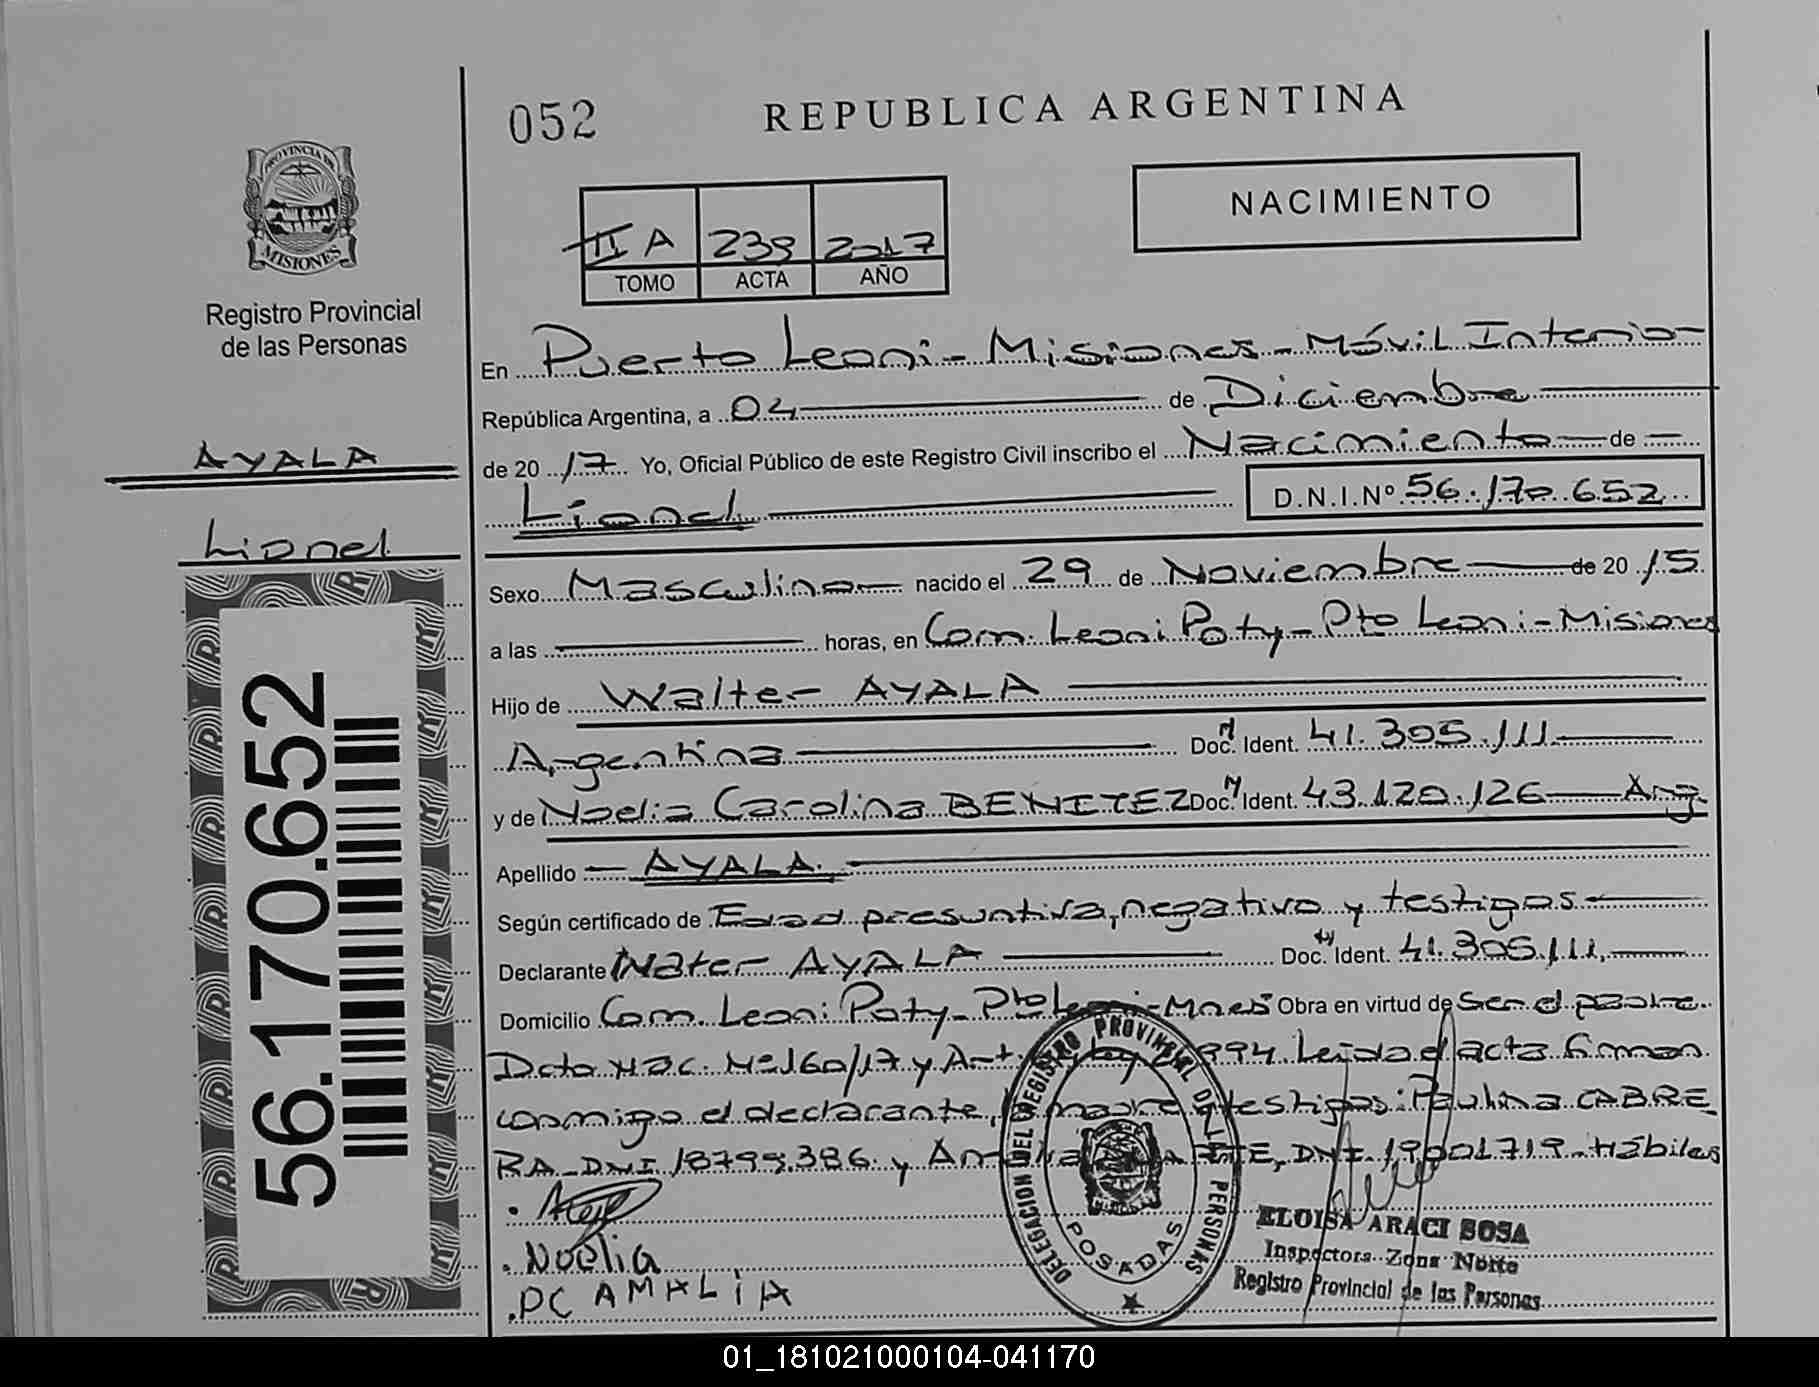 052
REPUBLICA ARGENTINA
PROVINCIA DE
MISIONES
Registro Provincial
de las Personas
NACIMIENTO
II A 239 2017
TOMO ACTA AÑO
En Puerto Leoni - Misiones - Móvil Interior
República Argentina, a 04 de Diciembre
AYALA
de 20 17 Yo, Oficial Público de este Registro Civil inscribo el Nacimiento de
Lionel D.N.I.Nº 56.170.652
Lionel
Sexo Masculino nacido el 29 de Noviembre de 20 15
a las horas, en Com. Leoni Poty - Pto Leoni - Misiones
Hijo de Walter AYALA
Argentina Doc. Ident. 41.305.111
y de Noelia Carolina BENITEZ Doc. Ident. 43.120.126 Arg.
Apellido AYALA.
Según certificado de Edad presuntiva, negativo y testigos
Declarante Walter AYALA Doc. Ident. 41.305.111,
Domicilio Com. Leoni Poty - Pto Leoni - Mnes Obra en virtud de Ser el padre.
Dcto Nac. Nº 160/17 y Art. Leida el acta firman
conmigo el declarante, la madre y testigos: Paulina CABRE
RA - DNI 18799.386 y DNI. 19.001.719. Hábiles
56.170.652
Noelia
PC AMALIA
DELEGACION DEL REGISTRO PROVINCIAL DE LAS PERSONAS
POSADAS
ELOISA ARACI SOSA
Inspectora Zona Norte
Registro Provincial de las Personas
01_181021000104-041170